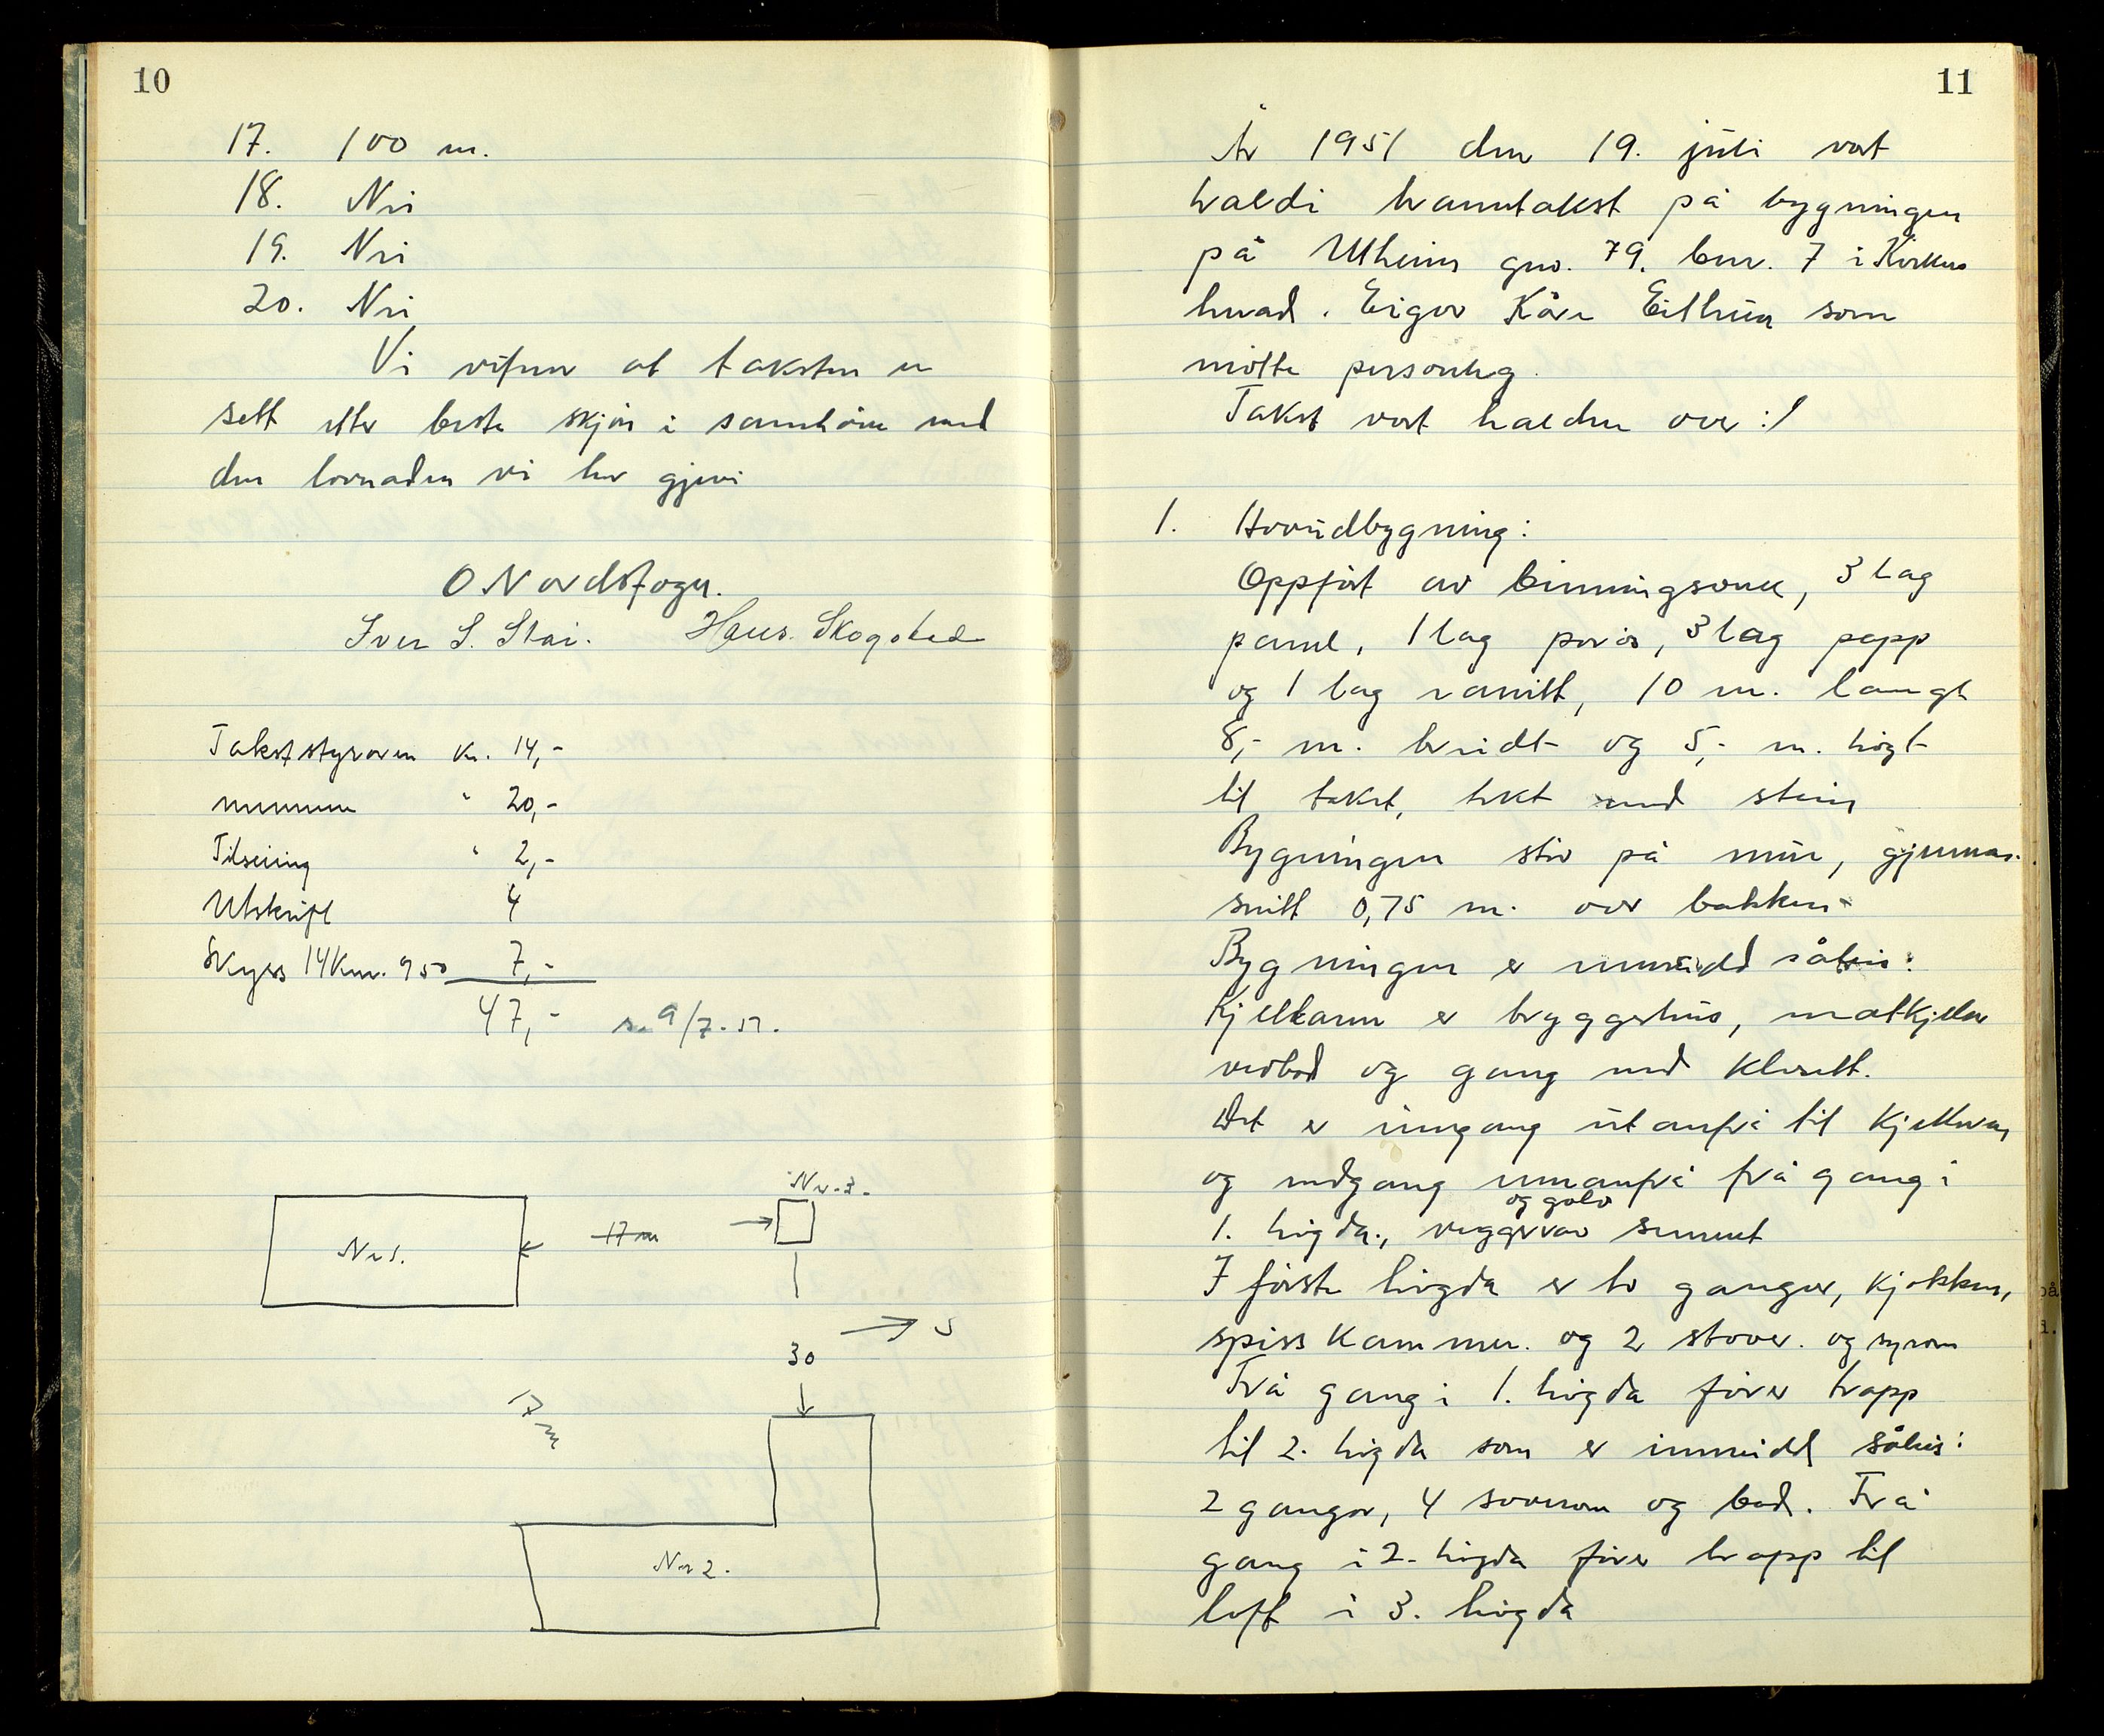 10
17. 100 m.
18. Nei
19. Nei
20. Nei
Vi vitner at taksten er
sett etter beste skjön i samhöve med
den lovnaden vi har gjevi
O Nordsfoger.
Iver S. Stai. Hans. Skogstad
Takststyraren kr. 14,-
" 20,-
Tilseiing " 2,-
Utskrift 4
Skyss 14 km. 7,-
47,- 9/7-51.
Nr. 3.
Nr 1.
17 m
S
30
17 m
Nr 2.
11
År 1951 den 19. juli vart
haldi branntakst på bygningen
på Utheim gnr. 79. bnr. 7 i
herad. Eigar Kåre Eithun som
møtte personleg.
Takst vart halden over:/
1. Hovudbygning:
Oppført av binningsverk, 3 lag
panel, 1 lag porøs, 3 lag papp
og 1 lag 10 m. langt
8,- m. breidt og 5,- m. høgt
til taket, tekt med stein
Bygningen står på mur, gjennom-
snitt 0,75 m. over bakken-
Bygningen er innreidd såleis:
Kjellaren er bryggerhus, matkjeller
vedbod og gang med klosett.
Det er inngang utanfrå til kjelleren
og nedgang innanfrå frå gang i
og golv
1. høgda., veggar av sement
I første høgda er to ganger, kjøkken,
spisskammer. og 2 stover. og syrom
Frå gang i 1. høgda fører trapp
til 2. høgda som er innreidd såleis:
2 gangar, 4 soverom og bad. Frå
gang i 2. høgda fører trapp til
loft i 3. høgda